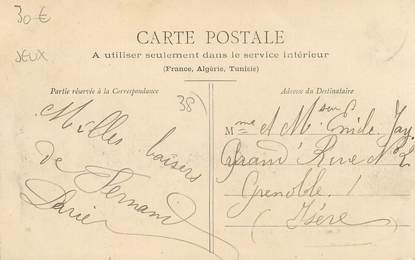 30€
JEUX
CARTE POSTALE
A utiliser seulement dans le service intérieur
(France, Algérie, Tunisie)
Partie réservée à la Correspondance
Adresse du Destinataire
38
Milles baisers
de Fernand
Mme et Monsieur Emile
Grand' Rue N° 2
Grenoble
(Isère)